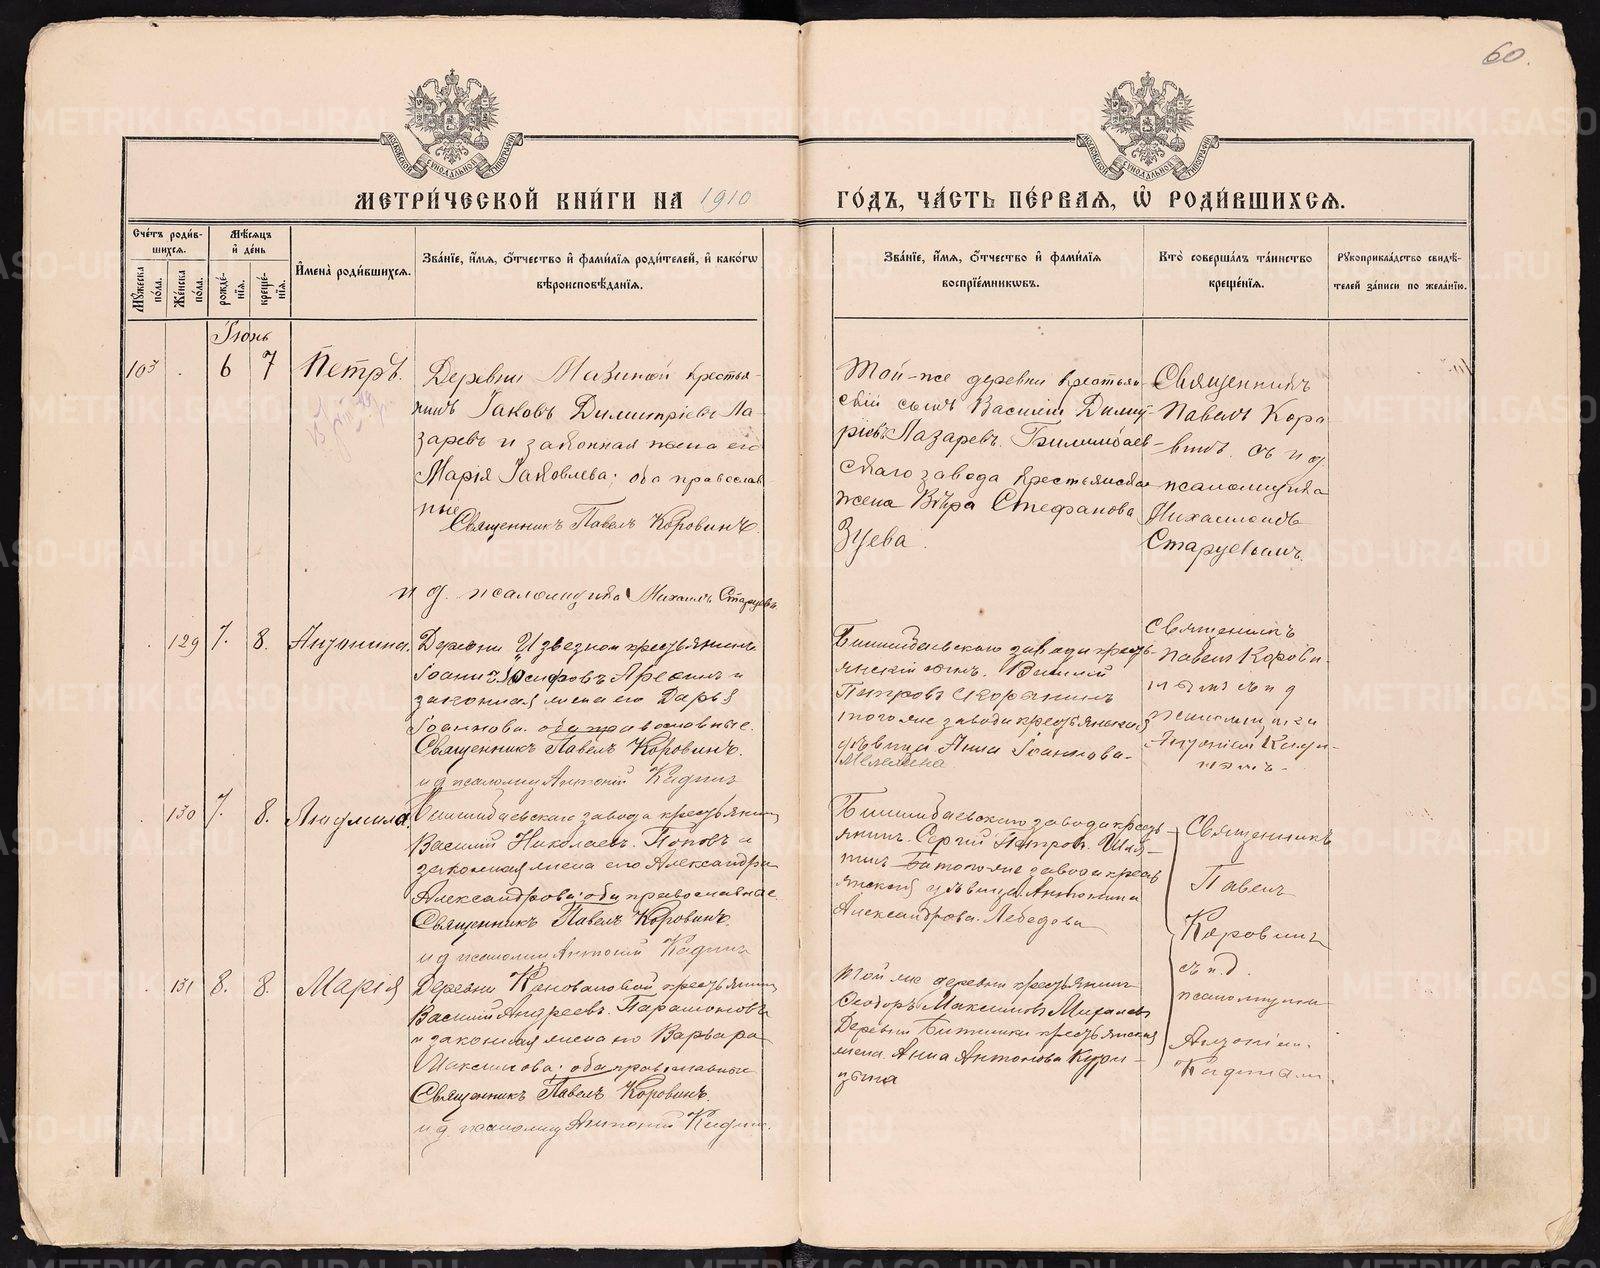 60.
МЕТРИ́ЧЕСКОЙ КНИ́ГИ НА 1910 ГО́ДЪ, ЧА́СТЬ ПЕ́РВАЯ, Ѡ҆ РОДИ́ВШИХСЯ.
Сче́тъ роди́вшихся.
Му́жеска по́ла.
Же́нска по́ла.
Мѣ́сяцъ и҆ де́нь
рожде́нїя.
креще́нїя.
И҆мена̀ роди́вшихся.
Зва́нїе, и҆́мя, ѻ҆́тчество и҆ фами́лїя роди́телей, и҆ како́гѡ
вѣроисповѣ́данїя.
Зва́нїе, и҆́мя, ѻ҆́тчество и҆ фами́лїя
воспрїе́мникѡвъ.
Кто̀ соверша́лъ та́инство
креще́нїя.
Рукоприкла́дство свидѣ́-
телей за́писи по жела́нїю.
Іюнь
103 6 7 Петръ.
Деревни Мазиной крестья-
нинъ Іаковъ Димитріевъ Ла-
заревъ и законная жена его
Марія Іаковлева; оба православ-
ные
Священникъ Павелъ Коровинъ.
и д. псаломщика Михаилъ Старцевъ
Той-же деревни крестьян-
скій сынъ Василій Димит-
ріевъ Лазаревъ. Билимбаев-
скаго завода крестьянская
жена Вѣра Стефанова
Зуева.
Священникъ
Павелъ Коро
винъ съ и д.
псаломщика
Михаиломъ
Старцевымъ.
129 7. 8. Антонина.
Деревни Извезной крестьянинъ
Іоаннъ Іосифовъ и
законная жена его Дарья
Іоаннова. оба православные.
Священникъ Павелъ Коровинъ.
и д псаломщ Антоній Кидинъ
Билимбаевского завода кресть-
янскій сынъ. Василій
Петровъ
того же завода крестьянская
дѣвица Анна Іоаннова
Священникъ
Павелъ Корови-
нымъ съ и д
псаломщика
Антоніемъ Киди-
нымъ.
130 7. 8. Людмила.
Билимбаевскаго завода крестьянинъ
Василий Николаевъ. Поповъ и
законная жена его Александра
Александрова; оба православные.
Священникъ Павелъ Коровинъ.
и д псаломщ Антоній Кидинъ
Билимбаевского завода кресть-
янинъ. Сергий Петровъ.
того же завода кресть
янская дѣвица Антонина
Александрова. Лебедова
Священникъ
Павелъ
Коровинъ
съ и.д.
псаломщика
Антоніем.
Кидинам.
131 8. 8. Марія
Деревни Коноваловой крестьянинъ
Василий Андреевъ. Парамоновъ
и законная жена его Варвара
Максимова; оба православные
Священникъ Павелъ Коровинъ.
и д псаломщ Антоній Кидинъ.
Той же деревни крестьянинъ
Ѳеодоръ Максимовъ Михалевъ
Деревни Битимки крестьянская
жена. Анна Антонова Кури-
цына
METRIKI.GASO-URAL.RU